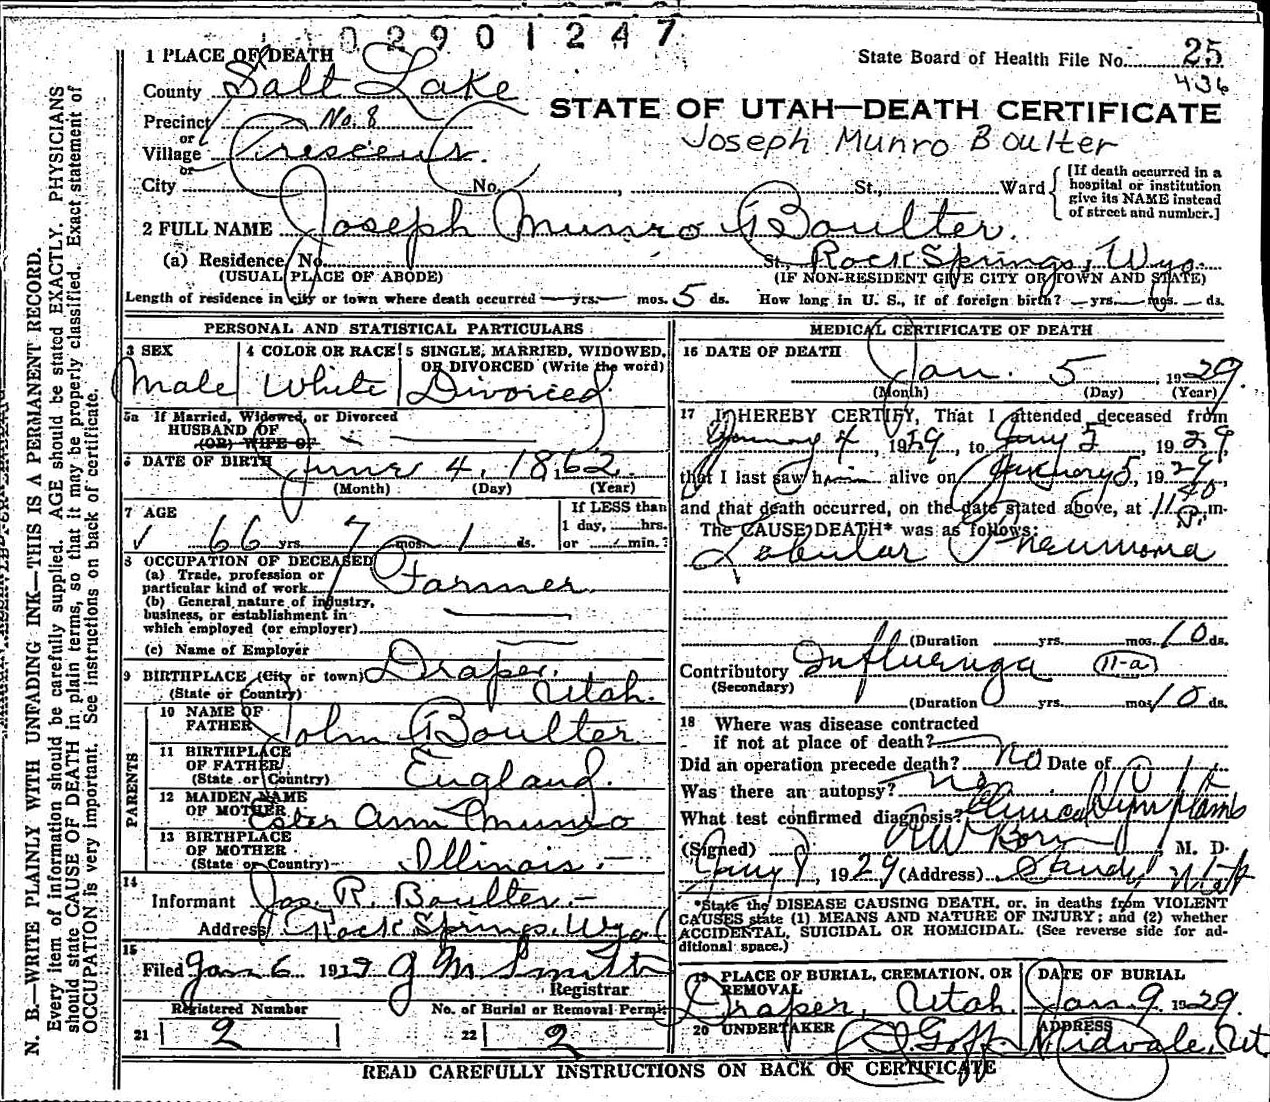 02901247
State Board of Health File No. 25
436
1 PLACE OF DEATH
County Salt Lake
STATE OF UTAH—DEATH CERTIFICATE
Precinct No. 8
or
Joseph Munro Boulter
Village Crescent.
or
City No. , St., Ward
[If death occurred in a hospital or institution give its NAME instead of street and number.]
2 FULL NAME Joseph Munro Boulter.
(a) Residence, No. St., Rock Springs, Wyo.
(USUAL PLACE OF ABODE) (IF NON-RESIDENT GIVE CITY OR TOWN AND STATE)
Length of residence in city or town where death occurred — yrs. — mos. 5 ds. How long in U. S., if of foreign birth? — yrs. — mos. — ds.
PERSONAL AND STATISTICAL PARTICULARS
3 SEX
Male
4 COLOR OR RACE
White
5 SINGLE, MARRIED, WIDOWED, OR DIVORCED (Write the word)
Divorced
5a If Married, Widowed, or Divorced
HUSBAND OF
(OR) WIFE OF
6 DATE OF BIRTH June 4, 1862.
(Month) (Day) (Year)
7 AGE
66 yrs. 7 mos. 1 ds.
If LESS than
1 day, hrs.
or min.?
8 OCCUPATION OF DECEASED
(a) Trade, profession or
particular kind of work Farmer.
(b) General nature of industry,
business, or establishment in
which employed (or employer)
(c) Name of Employer
9 BIRTHPLACE (City or town) Draper,
(State or Country) Utah.
PARENTS
10 NAME OF
FATHER John Boulter
11 BIRTHPLACE
OF FATHER
(State or Country) England.
12 MAIDEN NAME
OF MOTHER Ann Munro
13 BIRTHPLACE
OF MOTHER
(State or Country) Illinois.
14
Informant Jos. R. Boulter
Address Rock Springs, Wyo.
15
Filed Jan 6 1929 J M Smith
Registrar
Registered Number
21 2
No. of Burial or Removal Permit
22 2
MEDICAL CERTIFICATE OF DEATH
16 DATE OF DEATH
Jan. 5, 1929.
(Month) (Day) (Year)
17 I HEREBY CERTIFY, That I attended deceased from
4, 1929, to Jany 5, 1929,
that I last saw him alive on January 5, 1929,
and that death occurred, on the date stated above, at 11 40 P. m.
The CAUSE DEATH* was as follows:
Lobular Pneumonia
(Duration yrs. mos. 10 ds.
Contributory Influenza 11-a
(Secondary)
(Duration yrs. mos. 10 ds.
18 Where was disease contracted
if not at place of death?
Did an operation precede death? no Date of
Was there an autopsy? no
What test confirmed diagnosis? Clinical Symptoms
(Signed) M. D.
1929 (Address) Sandy Utah
*State the DISEASE CAUSING DEATH, or, in deaths from VIOLENT
CAUSES state (1) MEANS AND NATURE OF INJURY; and (2) whether
ACCIDENTAL, SUICIDAL OR HOMICIDAL. (See reverse side for ad-
ditional space.)
19 PLACE OF BURIAL, CREMATION, OR
REMOVAL
Draper, Utah.
DATE OF BURIAL
Jan. 9, 1929.
20 UNDERTAKER
Goff
ADDRESS
Midvale, Ut.
READ CAREFULLY INSTRUCTIONS ON BACK OF CERTIFICATE
N. B.—WRITE PLAINLY WITH UNFADING INK—THIS IS A PERMANENT RECORD.
Every item of information should be carefully supplied. AGE should be stated EXACTLY. PHYSICIANS
should state CAUSE OF DEATH in plain terms, so that it may be properly classified. Exact statement of
OCCUPATION is very important. See instructions on back of certificate.